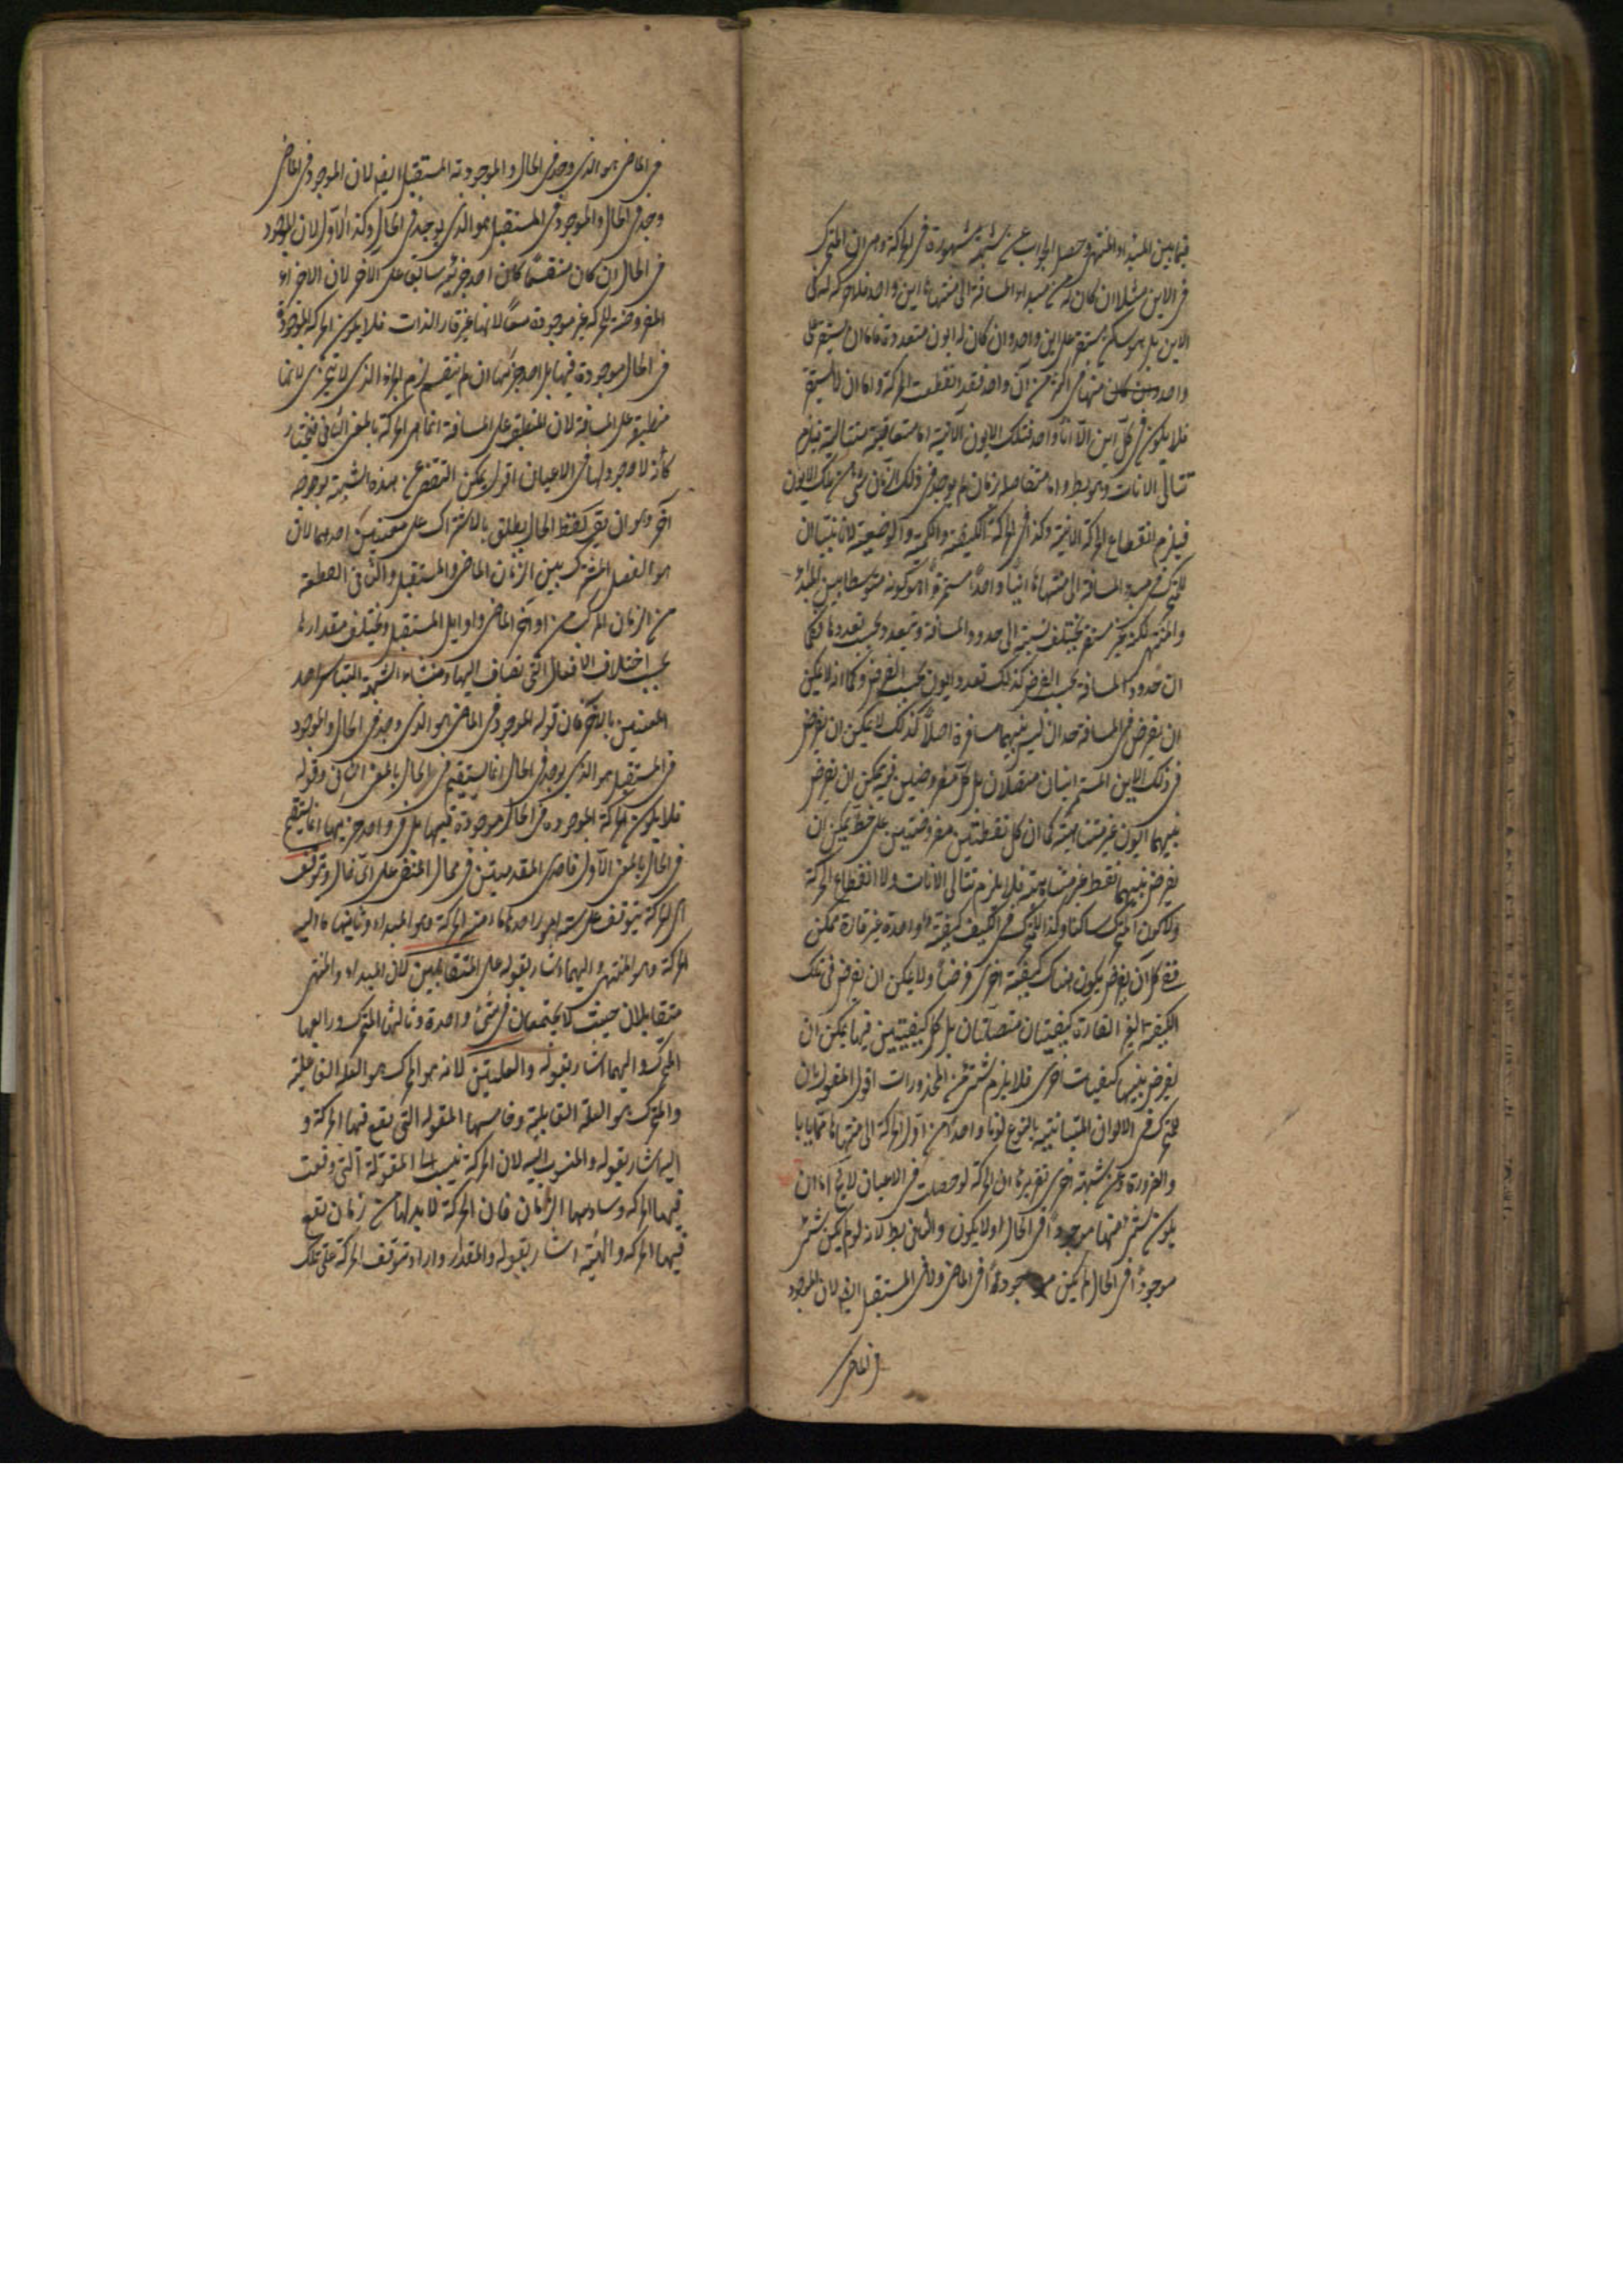 فيما بين المبداء والمنتهى وحصل الجواب عن شبهة مشهورة فى الحركة وهى ان المتحرك
فى الاين مثلا ان كان له من مبداء المسافة الى منتهاها اين واحد فلا حركة له فى
الاين بل هو ساكن مستقر على اين واحد وان كان له ايون متعددة فاما ان يستقر على
واحد منها فى اكثر من آن واحد فقد انقطعت الحركة واما ان لا يستقر
فلا يكون فى كل اين الا آنا واحدا فتلك الايون الآنية اما متعاقبة متتالية فيلزم
تتالى الانات وهو بط واما متفاصلة بزمان لم يوجد فى ذلك الزمان شئ من تلك الايون
فيلزم انقطاع الحركة الاينية وكذا فى الحركة الكيفية والكمية والوضعية لانا نقول ان
للمتحرك من مبدء المسافة الى منتهاها اينا واحدا مستمرا هو كونه متوسطا بين المبدء
والمنتهى لكنه غير مستقر يختلف نسبته الى حدود المسافة ويتعدد بحسب تعددها فكما
ان حدود المسافة بحسب الفرض كذلك تعدد الايون بحسب الفرض وكما انه لا يمكن
ان يفرض فى المسافة حدان ليس بينهما مسافة اصلا كذلك لا يمكن ان يفرض
فى ذلك الاين المستمر اينان متصلان بل كل مفروضين فيه يمكن ان يفرض
بينهما ايون غير متناهية كما ان كل نقطتين مفروضتين على خط يمكن ان
يفرض بينهما نقط غير متناهية فلا يلزم تتالى الانات ولا انقطاع الحركة
ولا كون المتحرك ساكنا وكذا للمتحرك فى الكيف كيفية واحدة غير قارة ممكن
فى كل آن يفرض يكون هناك كيفية اخرى فرضا ولا يمكن ان يفرض فى تلك
الكيفية الغير القارة كيفيتان متصلتان بل كل كيفيتين فيها يمكن ان
يفرض بينهما كيفيات اخرى فلا يلزم شئ من المحذورات اقول القول بان
للمتحرك فى الالوان المتباينة بالنوع لونا واحدا من اول الحركة الى منتهاها مما يأباه
والضرورة وعن شبهة اخرى تقريرها ان الحركة لو حصلت فى الاعيان لا يخ اما ان
يكون شئ منها موجودا فى الحال او لا يكون والثانى بط لانه لو لم يكن شئ
موجودا فى الحال لم يكن موجودا فى الماضى ولا فى المستقبل ايض لان الموجود
فى الماضى
فى الماضى هو الذى وجد فى الحال والموجود فى المستقبل ايض لان الموجود فى الماضى
وجد فى الحال والموجود فى المستقبل هو الذى يوجد فى الحال وكذا الاول لان الموجود
فى الحال ان كان منقسما كان احد جزئيه سابق على الاخر لان الاجزاء
المفروضة للحركة غير موجودة معا لانها غير قار الذات فلا يكون الحركة الموجودة
فى الحال موجودة فيها بل احد جزئيها وان لم ينقسم لزم الجزء الذى لا يتجزى لانها
منطبقة على المسافة لان المنطبق على المسافة انما هى الحركة بالمعنى الثانى فنختار
كأنه لا وجود لها فى الاعيان اقول يمكن التفصى عن هذه الشبهة بوجه
آخر وهو ان يقال لفظ الحال يطلق بالاشتراك على معنيين احدهما الان
هو الفصل المشترك بين الزمان الماضى والمستقبل والثانى القطعة
من الزمان المركبة من اواخر الماضى واوايل المستقبل ويختلف مقدارها
بحسب اختلاف الافعال التى تضاف اليها ومنشاء الشبهة التباس احد
المعنيين بالاخر فان قوله الموجود فى الماضى هو الذى وجد فى الحال والموجود
فى المستقبل هو الذى يوجد فى الحال انما يستقيم فى الحال بالمعنى الثانى وقوله
فلا يكون الحركة الموجودة فى الحال موجودة فيها بل فى واحد جزئيها انما يستقيم
فى الحال بالمعنى الاول فاحدى المقدمتين فى محل المنع على اى حال وتتوقف
اى الحركة يتوقف على ستة امور احدها ما منه الحركة وهو المبداء وثانيها ما اليه
الحركة وهو المنتهى واليهما اشار بقوله على المتقابلين لان المبداء والمنتهى
متقابلان حيث لا يجتمعان فى شئ واحد وثالثها المتحرك ورابعها
المحرك واليهما اشار بقوله والعلتين لانه هو المحرك هو العلة الفاعلية
والمتحرك هو العلة القابلية وخامسها المقولة التى يقع فيها الحركة و
اليه اشار بقوله والمنسوب اليه لان الحركة تنسب الى المقولة التى وقعت
فيها الحركة وسادسها الزمان فان الحركة لا بد لها من زمان تقع
فيها الحركة واليه اشار بقوله والمقدار واراد بتوقف الحركة على تلك